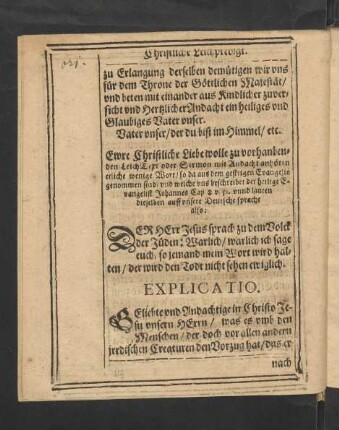 Christliche Leichpredigt.
zu Erlangung derselben demütigen wir vns
für dem Throne der Göttlichen Majestät/
vnd beten mit einander aus Kindlicher zuver-
sicht vnd Hertzlicher Andacht ein heiliges vnd
Glaubiges Vater vnser.
Vater vnser/ der du bist im Himmel/ etc.
Ewre Christliche Liebe wolle zu vorhanden-
den Leich Text oder Sermon mit Andacht anhören
etliche wenige Wort/ so da aus dem gestrigen Evangelio
genommen sind/ vnd welche vns beschreibet der heilige E-
vangelist Johannes Cap 8 v. 51. vnd lauten
dieselben auff vnsere Deutsche sprache
also:
DER HErr Jesus sprach zu dem Volck
der Jüden: Warlich/ warlich ich sage
euch: so jemand mein Wort wird hal-
ten/ der wird den Todt nicht sehen ewiglich.
EXPLICATIO.
GEliebte vnd Andachtige in Christo Je-
su vnserm HErrn/ was es vmb den
Menschen/ der doch vor allen andern
jrrdischen Creaturen den Vorzug hat/ das er
nach